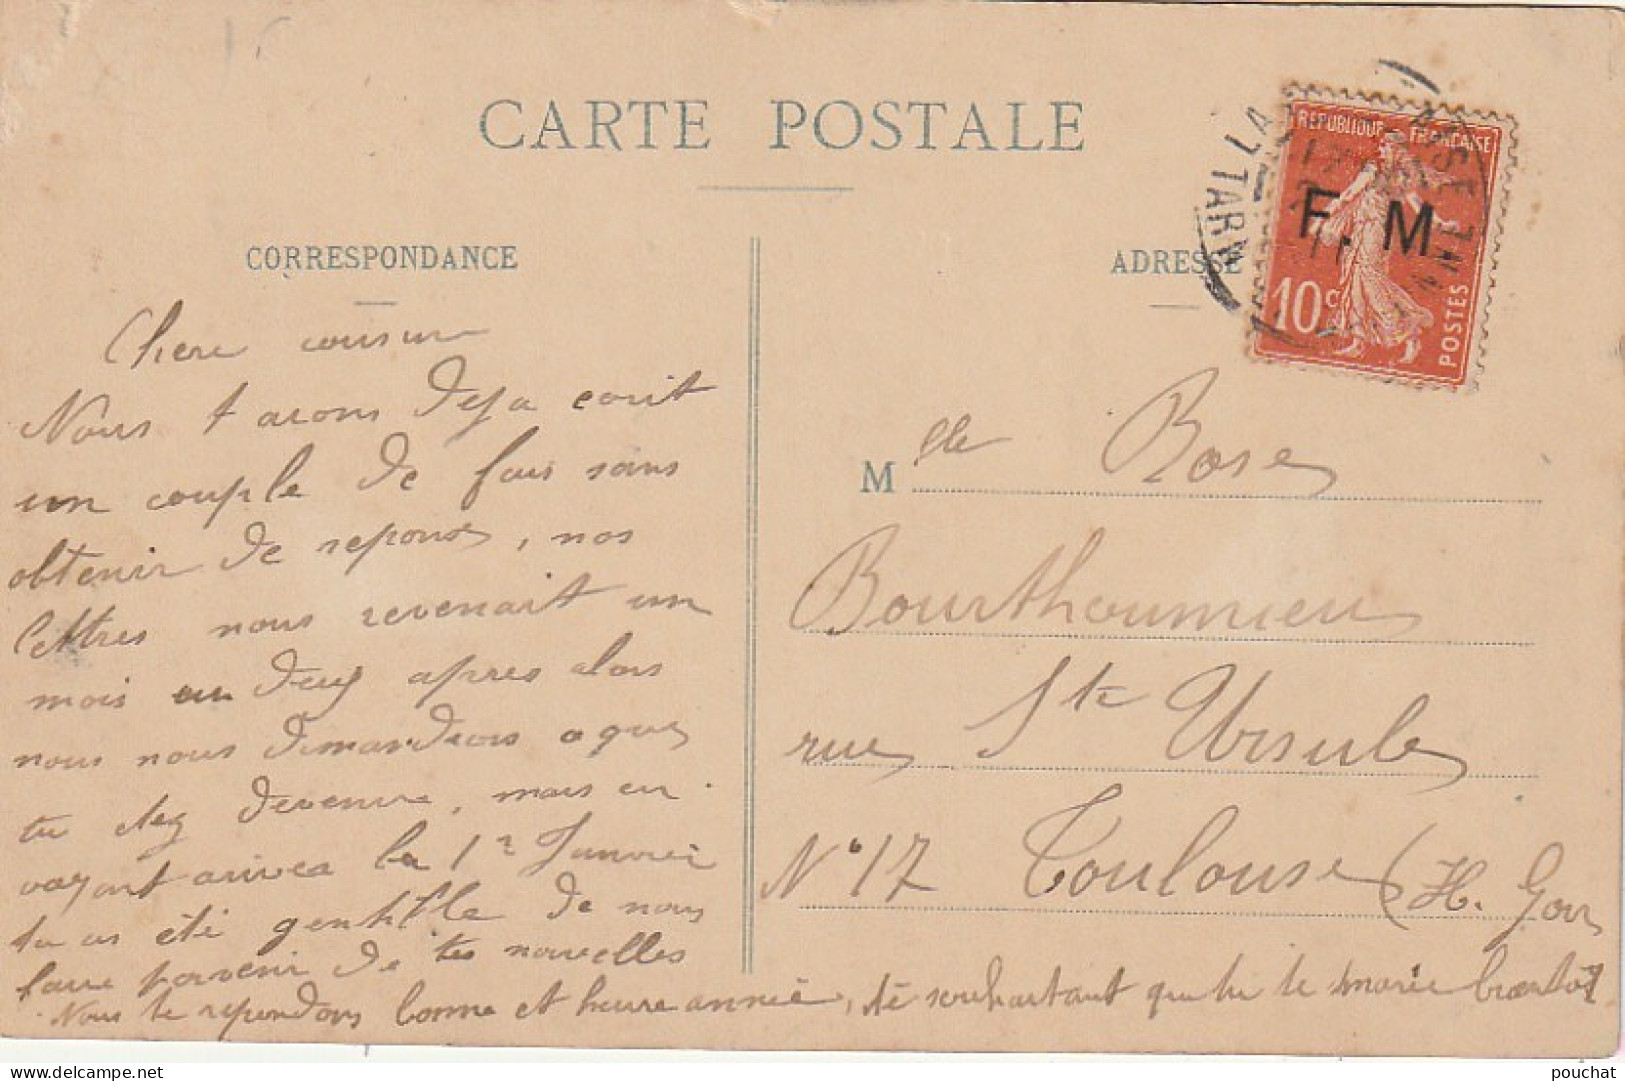 CARTE POSTALE
CORRESPONDANCE
ADRESSE
REPUBLIQUE FRANÇAISE
F. M
10 c
POSTES
TARN
Chere cousine
Nous t avons deja ecrit
un couple de fois sans
obtenir de reponse, nos
lettres nous revenait un
mois ou deux apres alors
nous nous demandions a que
tu étez devenue, mais en
voyant arrivee le 1r Janvier
tu as été gentille de nous
faire parvenir de tes nouvelles
Nous te repondons bonne et heureannée, te souhaitant que tu te marie bientôt
M elle Rose
Bourthoumieu
rue Ste Ursule
N° 17 Toulouse (H. Gar
delcampe.net
pouchat